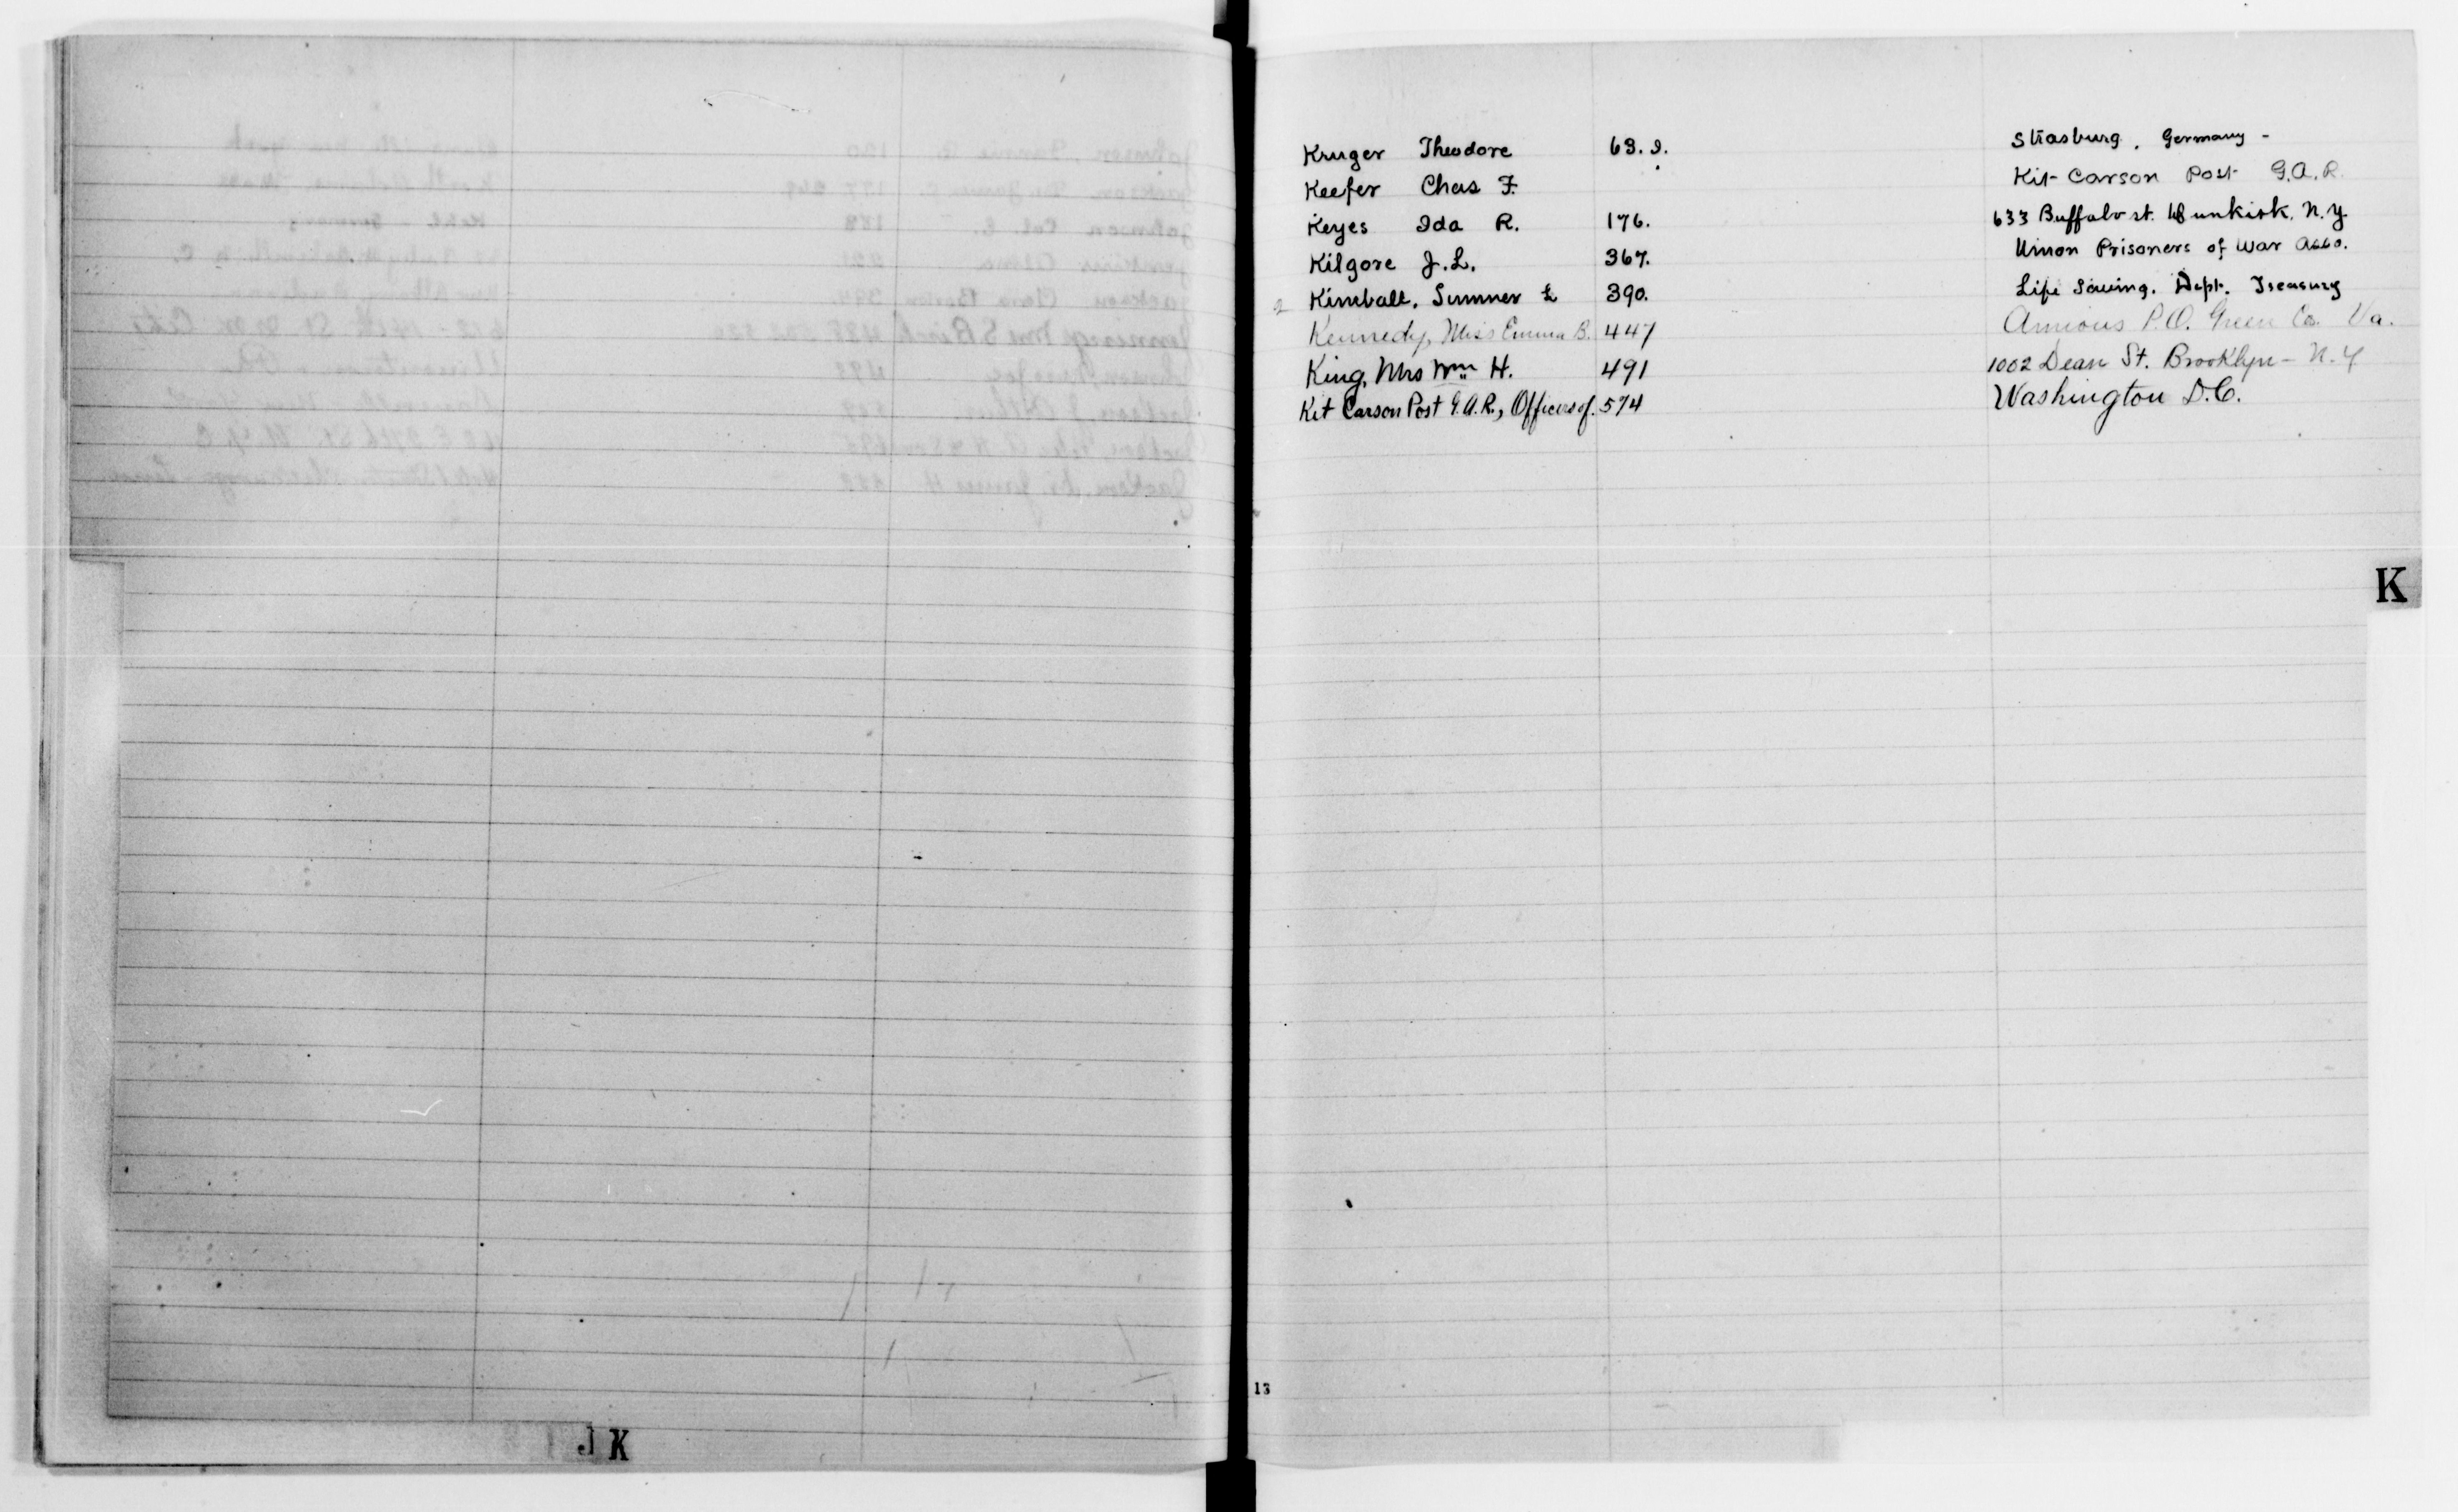 Kruger Theodore 63. I. Strasburg, Germany -
Keefer Chas F. Kit Carson Post G.A.R.
Keyes Ida R. 176. 633 Buffalo st. Dunkirk. N.Y.
Kilgore J.L. 367. Union Prisoners of War Asso.
Kimball, Sumner 390. Life Saving. Dept. Treasury
Kennedy, Miss Emma B. 447 P.O. Green Co. Va.
King, Mrs Wm H. 491 1002 Dean St. Brooklyn - N.Y
Kit Carson Post G.A.R., Officers of. 574 Washington D.C.
K
13
J K